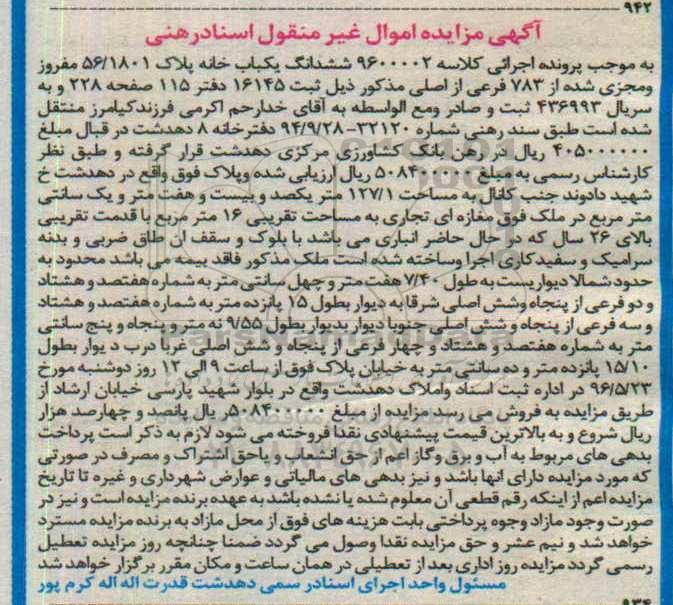 ۹۴۲
آگهی مزایده اموال غیر منقول اسنادرهنی
به موجب پرونده اجرائی کلاسه ۹۶۰۰۰۰۲ ششدانگ یکباب خانه پلاک ۵۶/۱۸۰۱ مفروز
ومجزی شده از ۷۸۳ فرعی از اصلی مذکور ذیل ثبت ۱۶۱۴۵ دفتر ۱۱۵ صفحه ۲۲۸ و به
سریال ۴۳۶۹۹۳ ثبت و صادر ومع الواسطه به آقای خدارحم اکرمی فرزندکیامرز منتقل
شده است طبق سند رهنی شماره ۳۲۱۲۰-۹۴/۹/۲۸ دفترخانه ۸ دهدشت در قبال مبلغ
۴۰۵۰۰۰۰۰۰ ریال در رهن بانک کشاورزی مرکزی دهدشت قرار گرفته و طبق نظر
کارشناس رسمی به مبلغ ۵۰۸۴۰۰۰۰۰ ریال ارزیابی شده وپلاک فوق واقع در دهدشت خ
شهید دادوند جنب کانال به مساحت ۱۲۷/۱ متر یکصد و بیست و هفت متر و یک سانتی
متر مربع در ملک فوق مغازه ای تجاری به مساحت تقریبی ۱۶ متر مربع با قدمت تقریبی
بالای ۲۶ سال که در حال حاضر انباری می باشد با بلوک و سقف ان طاق ضربی و بدنه
سرامیک و سفیدکاری اجرا وساخته شده است ملک مذکور فاقد بیمه می باشد محدود به
حدود شمالا دیواریست به طول ۷/۴۰ هفت متر و چهل سانتی متر به شماره هفتصد و هشتاد
و دو فرعی از پنجاه وشش اصلی شرقا به دیوار بطول ۱۵ پانزده متر به شماره هفتصد و هشتاد
و سه فرعی از پنجاه و شش اصلی جنوبا دیوار بدیوار بطول ۹/۵۵ نه متر و پنجاه و پنج سانتی
متر به شماره هفتصد و هشتاد و چهار فرعی از پنجاه و شش اصلی غربا درب د یوار بطول
۱۵/۱۰ پانزده متر و ده سانتی متر به خیابان پلاک فوق از ساعت ۹ الی ۱۲ روز دوشنبه مورخ
۹۶/۵/۲۳ در اداره ثبت اسناد واملاک دهدشت واقع در بلوار شهید پارسی خیابان ارشاد از
طریق مزایده به فروش می رسد مزایده از مبلغ ۵۰۸۴۰۰۰۰۰ ریال پانصد و چهارصد هزار
ریال شروع و به بالاترین قیمت پیشنهادی نقدا فروخته می شود لازم به ذکر است پرداخت
بدهی های مربوط به آب و برق وگاز اعم از حق انشعاب و یاحق اشتراک و مصرف در صورتی
که مورد مزایده دارای انها باشد و نیز بدهی های مالیاتی و عوارض شهرداری و غیره تا تاریخ
مزایده اعم از اینکه رقم قطعی آن معلوم شده یا نشده باشد به عهده برنده مزایده است و نیز در
صورت وجود مازاد وجوه پرداختی بابت هزینه های فوق از محل مازاد به برنده مزایده مسترد
خواهد شد و نیم عشر و حق مزایده نقدا وصول می گردد ضمنا چنانچه روز مزایده تعطیل
رسمی گردد مزایده روز اداری بعد از تعطیلی در همان ساعت و مکان مقرر برگزار خواهد شد
مسئول واحد اجرای اسنادر سمی دهدشت قدرت اله اله کرم پور
۹۳۴